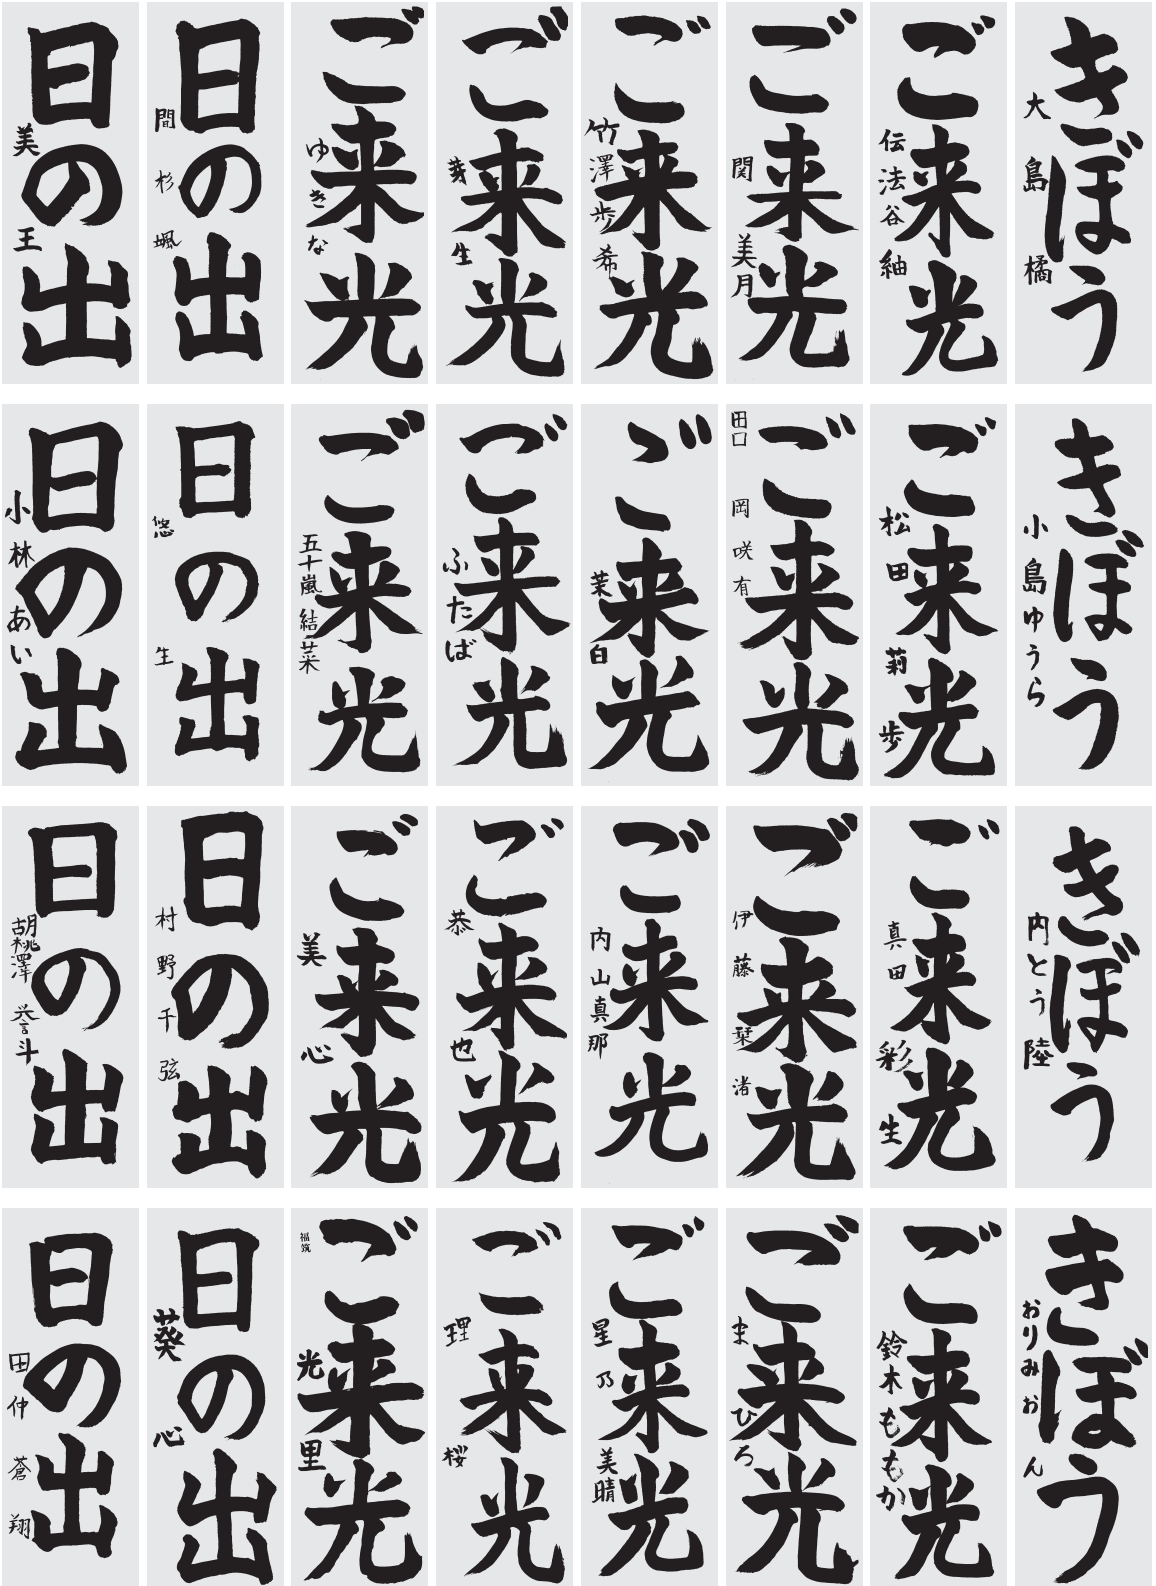 きぼう
大島橘
ご来光
伝法谷紬
ご来光
関美月
ご来光
竹澤歩希
ご来光
芽生
ご来光
ゆきな
日の出
間杉颯
日の出
美王
きぼう
小島ゆうら
ご来光
松田莉歩
ご来光
田口岡咲有
ご来光
茉白
ご来光
ふたば
ご来光
五十嵐結菜
日の出
悠生
日の出
小林あい
きぼう
内とう陸
ご来光
真田彩生
ご来光
伊藤栞渚
ご来光
内山真那
ご来光
恭也
ご来光
美心
日の出
村野千弦
日の出
胡桃澤誉斗
きぼう
おりみおん
ご来光
鈴木ももか
ご来光
まひろ
ご来光
星乃美晴
ご来光
理桜
ご来光
福筑光里
日の出
葵心
日の出
田仲蒼翔